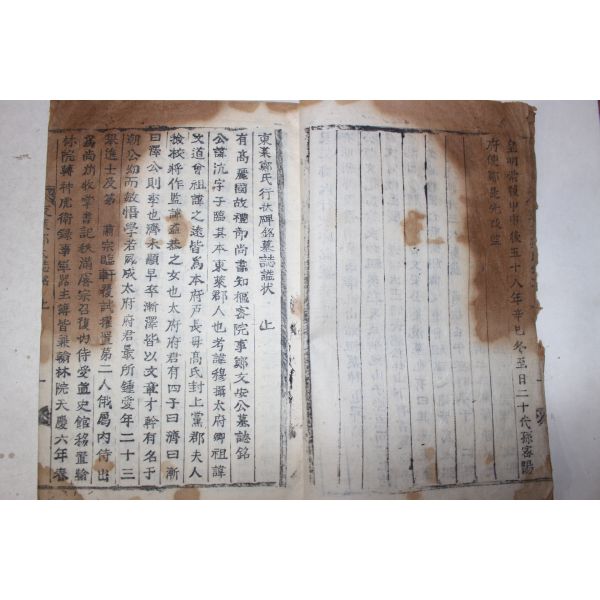 皇明崇禎甲申後五十八年辛巳冬至日二十代孫密陽
府使鄭是先改鋟
東萊鄭氏行狀碑銘墓誌謚狀 上
有高麗國故禮部尚書知樞密院事鄭文安公墓誌銘
公諱沆字子臨其本東萊郡人也考諱穆攝太府卿祖諱
文道曾祖諱之遠皆爲本府戶長母高氏封上黨郡夫人
檢校將作監諱益恭之女也太府府君有四子曰濟曰漸
曰澤公則季也濟未顯早卒漸澤皆以文章才幹有名于
朝公幼而敏悟學若夙成太府府君最所鍾愛年二十三
擧進士及第 肅宗臨軒覆試擢置第二人俄屬內侍出
爲尚州牧掌書記秩滿 睿宗召復內侍受直史館移直翰
林院轉神虎衛錄事軍器主簿皆兼翰林院天慶六年春